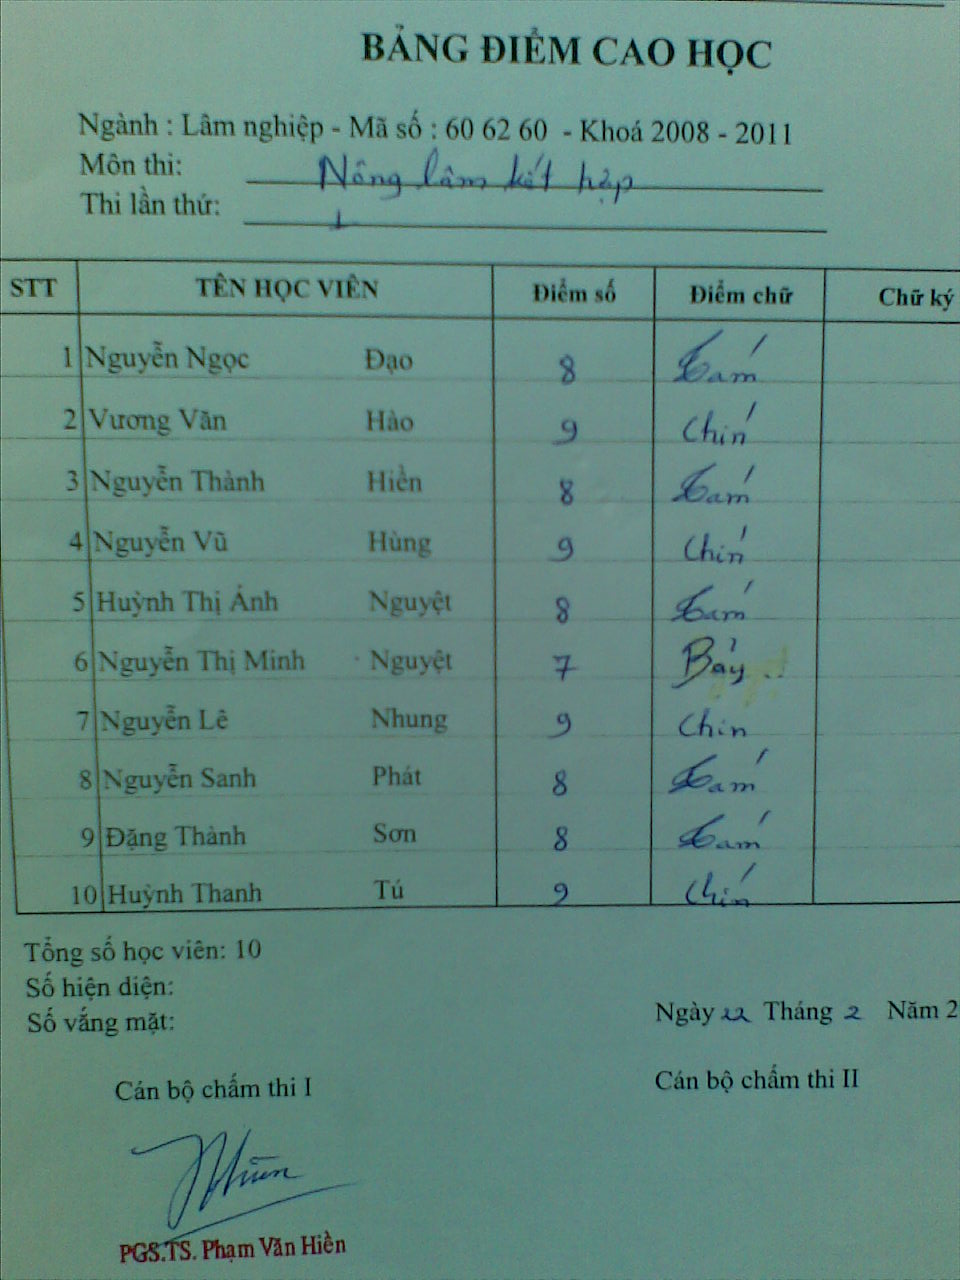 BẢNG ĐIỂM CAO HỌC
Ngành : Lâm nghiệp - Mã số : 60 62 60 - Khoá 2008 - 2011
Môn thi: Nông lâm kết hợp
Thi lần thứ: 1
STT TÊN HỌC VIÊN Điểm số Điểm chữ Chữ ký
1 Nguyễn Ngọc Đạo 8 Tám
2 Vương Văn Hào 9 Chín
3 Nguyễn Thành Hiền 8 Tám
4 Nguyễn Vũ Hùng 9 Chín
5 Huỳnh Thị Ánh Nguyệt 8 Tám
6 Nguyễn Thị Minh Nguyệt 7 Bảy
7 Nguyễn Lê Nhung 9 Chin
8 Nguyễn Sanh Phát 8 Tám
9 Đặng Thành Sơn 8 Tám
10 Huỳnh Thanh Tú 9 Chín
Tổng số học viên: 10
Số hiện diện:
Số vắng mặt:
Ngày 22 Tháng 2 Năm 2
Cán bộ chấm thi I Cán bộ chấm thi II
PGS.TS. Phạm Văn Hiền